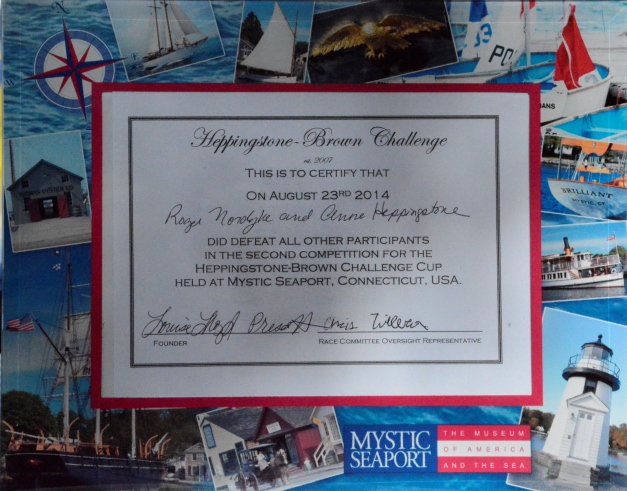 PO
ANS
Heppingstone-Brown Challenge
est. 2007
THIS IS TO CERTIFY THAT
ON AUGUST 23RD 2014
Roger Nordyke and Anne Heppingstone
DID DEFEAT ALL OTHER PARTICIPANTS
IN THE SECOND COMPETITION FOR THE
HEPPINGSTONE-BROWN CHALLENGE CUP
HELD AT MYSTIC SEAPORT, CONNECTICUT, USA.
Louise Lloyd Prescott Chris
FOUNDER RACE COMMITTEE OVERSIGHT REPRESENTATIVE
BRILLIANT
MYSTIC, CT
MYSTIC SEAPORT
THE MUSEUM
OF AMERICA
AND THE SEA